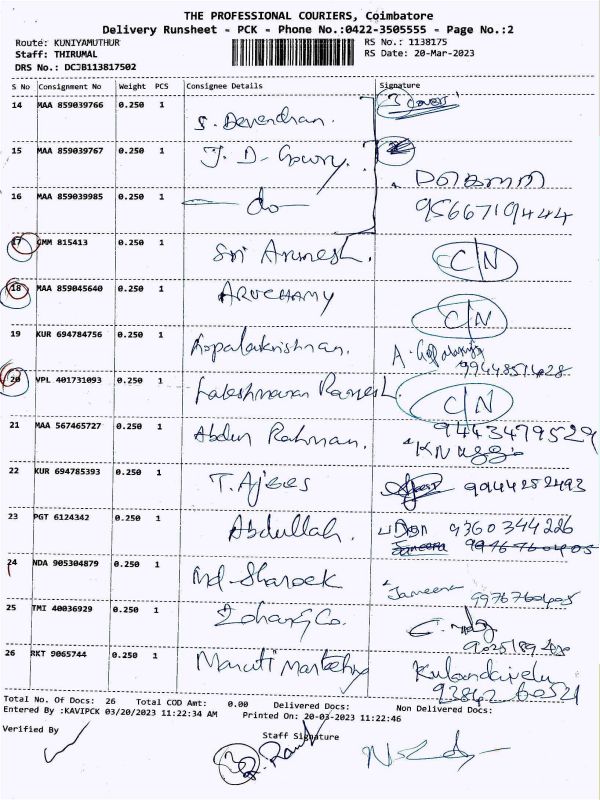 THE PROFESSIONAL COURIERS, Coimbatore
Delivery Runsheet - PCK - Phone No.:0422-3505555 - Page No.:2
Route: KUNIYAMUTHUR RS No.: 1138175
Staff: THIRUMAL RS Date: 20-Mar-2023
DRS No.: DCJB113817502
S No Consignment No Weight PCS Consignee Details Signature
14 MAA 859039766 0.250 1 S. Devendran.
15 MAA 859039767 0.250 1 J. D. Gowry.
16 MAA 859039985 0.250 1 - do - 9566719444
17 GMM 815413 0.250 1 Sri Arunesh. C/N
18 MAA 859045640 0.250 1 ARUCHAMY C/N
19 KUR 694784756 0.250 1 Gopalakrishnan. A. 9944851428
20 VPL 401731093 0.250 1 Lakeshmanan Ramesh. C/N
21 MAA 567465727 0.250 1 Abdun Rahman. 9443479529
22 KUR 694785393 0.250 1 T. Ajees 9944252493
23 PGT 6124342 0.250 1 Abdullah. 9360344226
24 NDA 905304879 0.250 1 Md-Sharook Jameena 9976760405
25 TMI 40036929 0.250 1
26 RKT 9065744 0.250 1 Maruti Marketing Kulandaivelu
Total No. Of Docs: 26 Total COD Amt: 0.00 Delivered Docs: Non Delivered Docs:
Entered By :KAVIPCK 03/20/2023 11:22:34 AM Printed On: 20-03-2023 11:22:46
Verified By Staff Signature